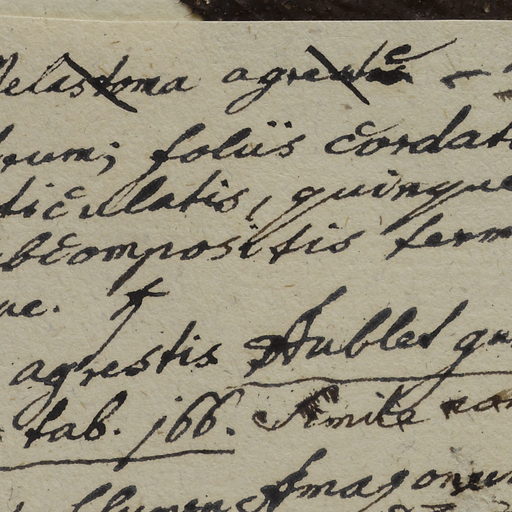 Melastoma agreste
rum; foliis cordat
ticulatis, quinque
bcompositis term
ue.
agrestis Aublet gu
tab. 166. Simile
flumen Amazonum